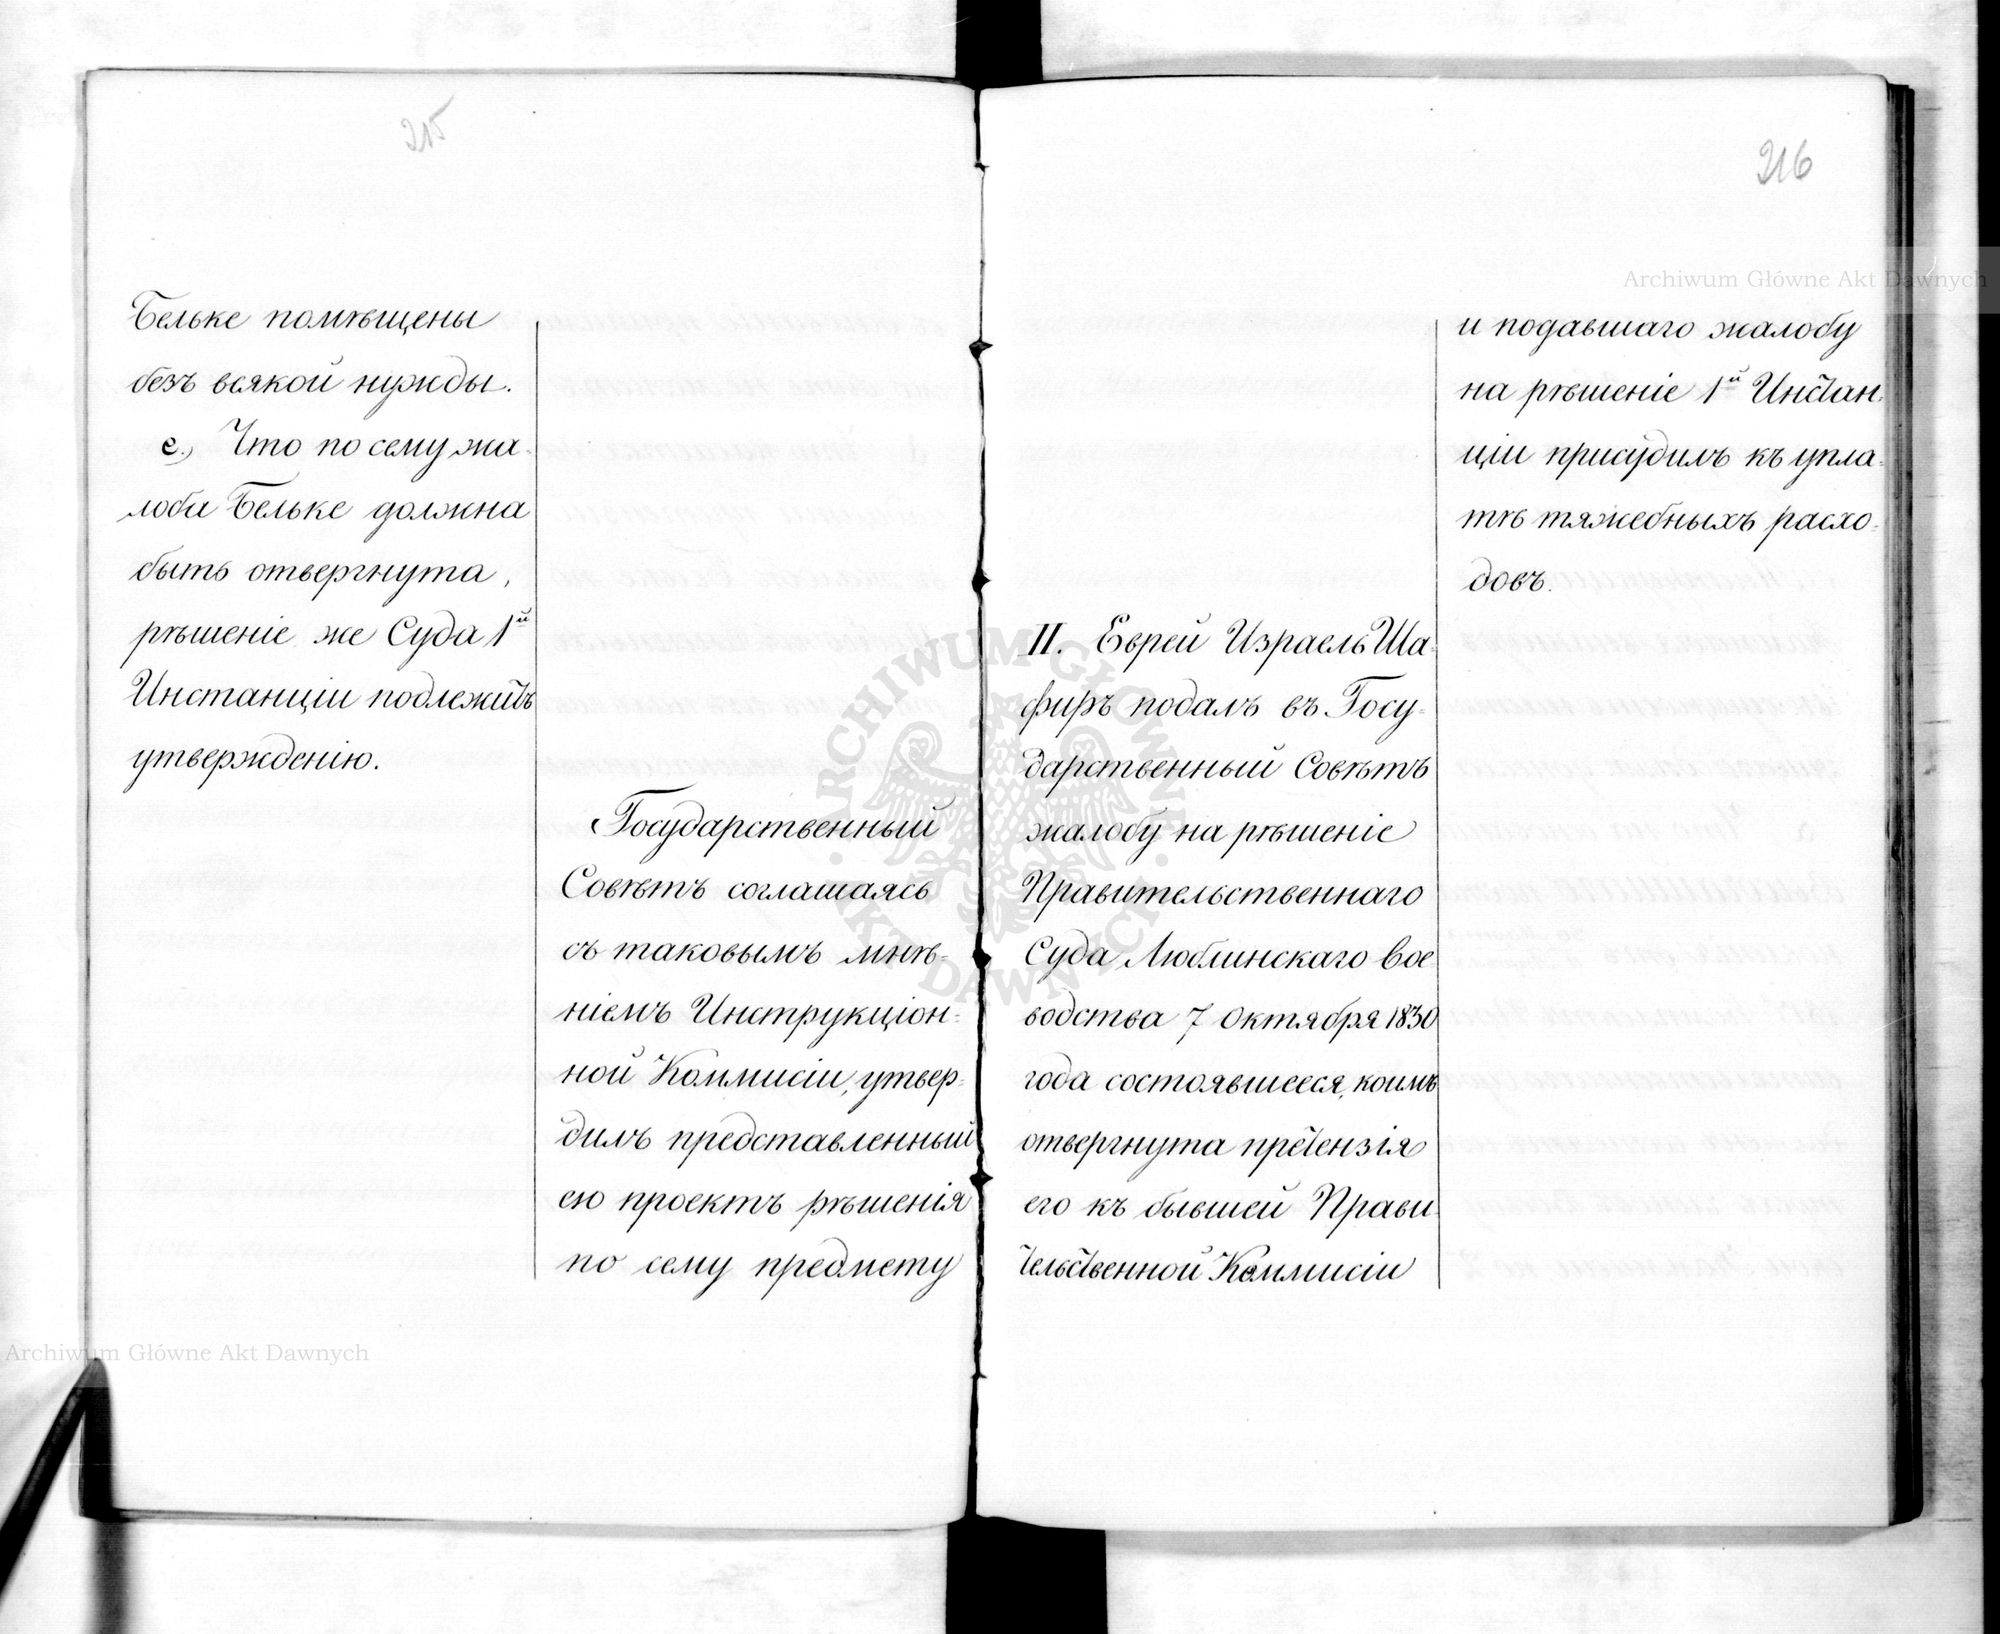 215
Бельке помѣщены
безъ всякой нужды.
е.) Что по сему жа-
лоба Бельке должна
быть отвергнута,
рѣшеніе же Суда 1й
Инстанціи подлежитъ
утвержденію.
Государственный
Совѣтъ соглашаясь
съ таковымъ мнѣ-
ніемъ Инструкціон-
ной Коммисіи, утвер-
дилъ представленный
ею проектъ рѣшенія
по сему предмету
216
II. Еврей Израель Ша-
фиръ подалъ въ Госу-
дарственный Совѣтъ
жалобу на рѣшеніе
Правительственнаго
Суда Люблинскаго Вое-
водства 7 Октября 1830
года состоявшееся, коимъ
отвергнута претензія
его къ бывшей Прави-
тельственной Коммисіи
и подавшаго жалобу
на рѣшеніе 1й Инстан-
ціи присудилъ къ упла-
тѣ тяжебныхъ расхо-
довъ.
Archiwum Główne Akt Dawnych
Archiwum Główne Akt Dawnych
ARCHIWUM GŁÓWNE AKT DAWNYCH